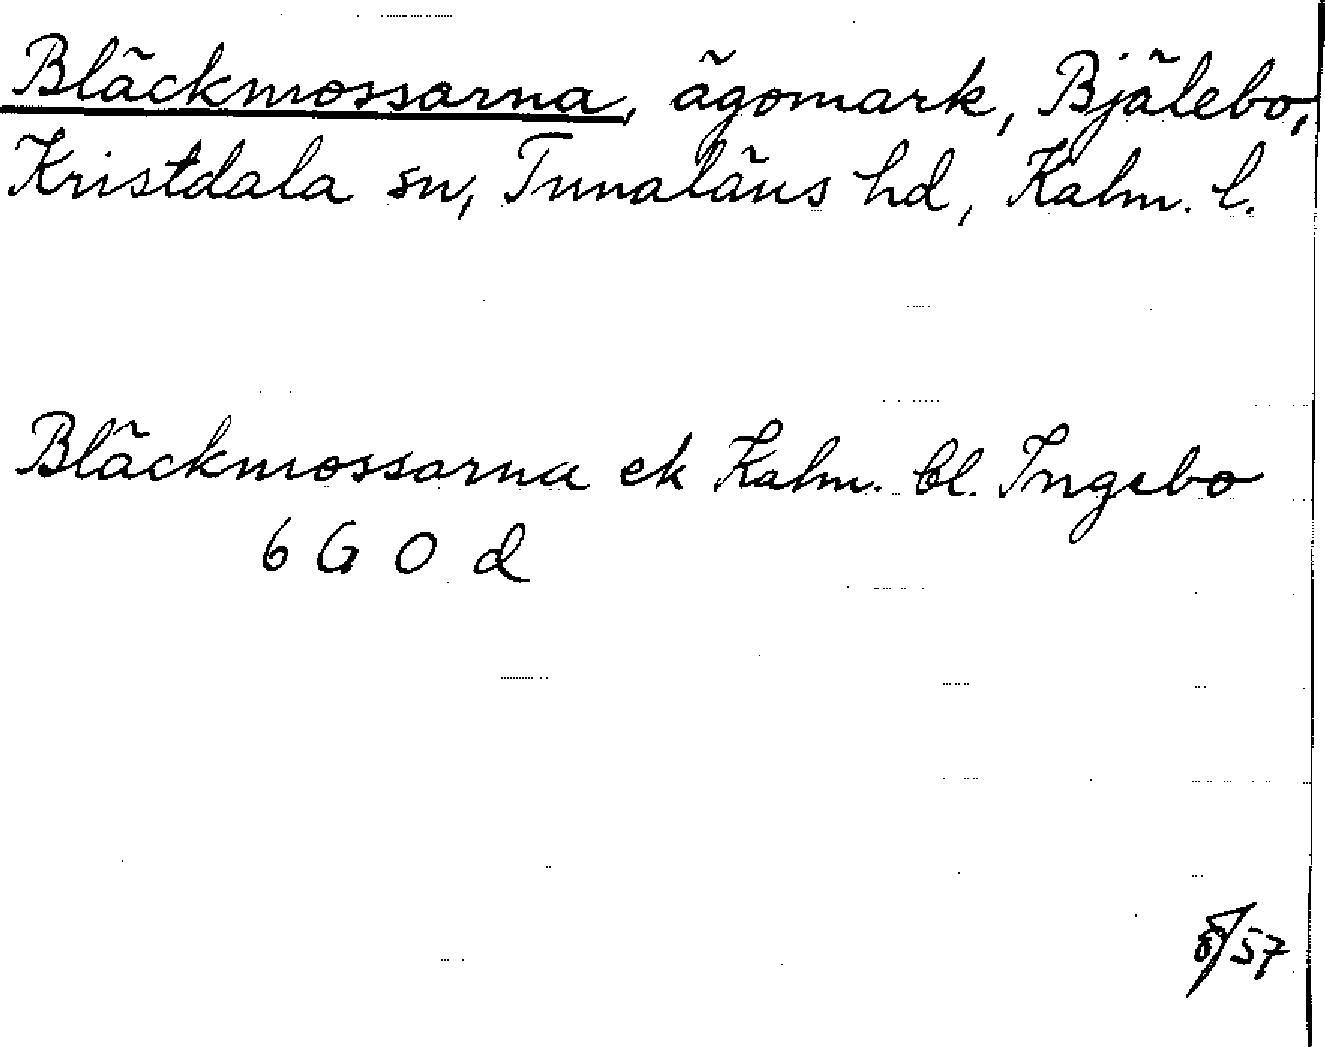 Bläckmossarna, ägomark, Bjälebo,
Kristdala sn, Tunaläns hd, Kalm. l.
Bläckmossarna ek Kalm. bl. Ingebo
6 G O d
8/57